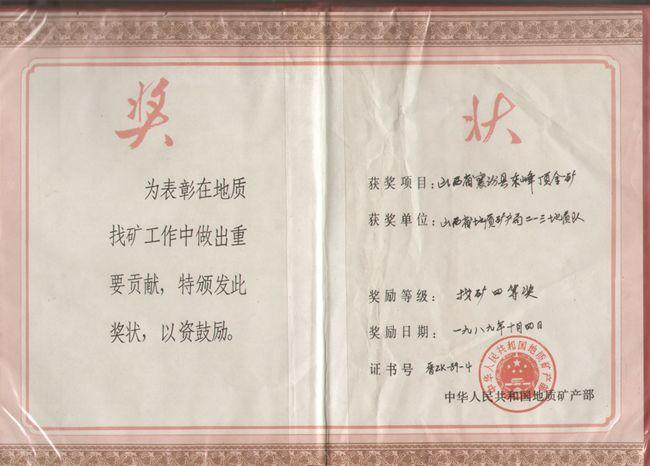 奖
为表彰在地质
找矿工作中做出重
要贡献，特颁发此
奖状，以资鼓励。
状
获奖项目：山西省襄汾县东峰顶金矿
获奖单位：山西省地质矿产局二一三地质队
奖励等级：找矿四等奖
奖励日期：一九八九年十月四日
证书号 晋ZK-89-4
中华人民共和国地质矿产部
中华人民共和国地质矿产部